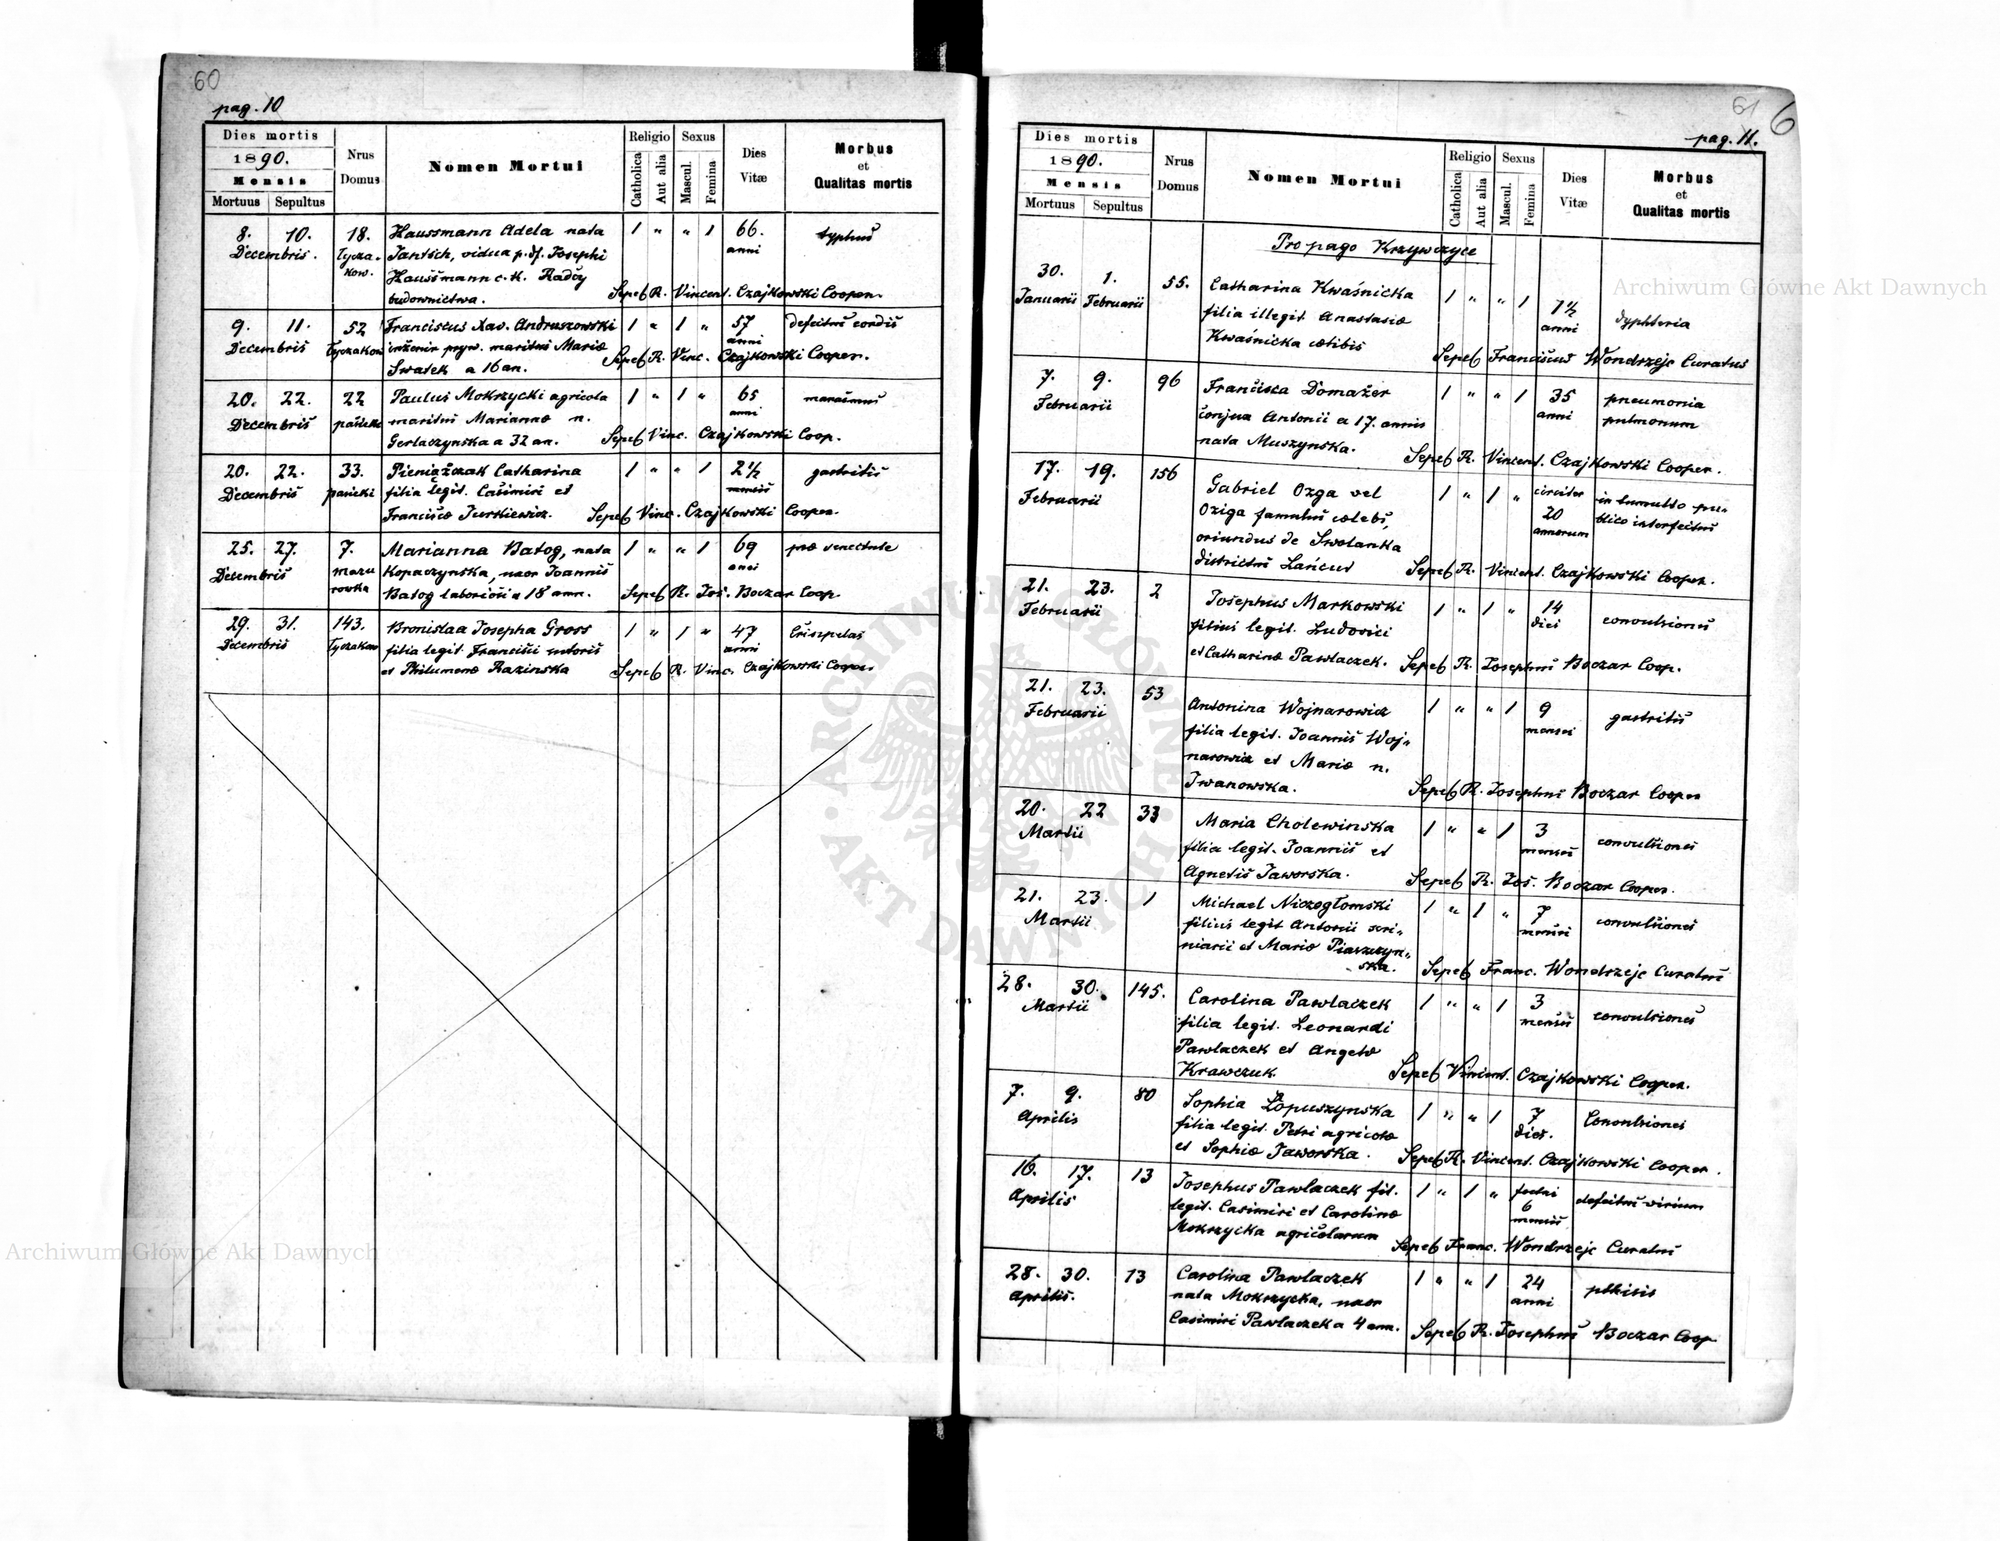 60
pag. 10
Dies mortis
1890.
Mensis
Mortuus Sepultus
Nrus Domus
Nomen Mortui
Religio
Catholica
Aut alia
Sexus
Mascul.
Femina
Dies Vitæ
Morbus et Qualitas mortis
8. 10. 18. Haussmann Adela nata 1 " " 1 66. typhus
Decembris. Łycza- Jantsch, vidua p. df. Josephi anni
kow. Haussmann c. k. Radcy
budownictwa. Sepel. R. Vincent. Czajkowski Cooper.
9. 11. 52 Franciscus Xav. Andruszowski 1 " 1 " 57 defectus cordis
Decembris Łyczakow inżenir pryw. maritus Mariæ anni
Swatek a 16 an. Sepel. R. Vinc. Czajkowski Cooper.
20. 22. 22 Paulus Mokrzycki agricola 1 " 1 " 65 marasmus
Decembris maritus Mariannæ n. anni
Gerlaczynska a 32 an. Sepel. Vinc. Czajkowski Coop.
20. 22. 33. Pieniążczak Catharina 1 " " 1 2 1/2 gastritis
Decembris filia legit. Casimiri et mensis
Franciscæ Jurkiewicz. Sepel. Vinc. Czajkowski Cooper.
25. 27. 7. Marianna Batog, nata 1 " " 1 69 præ senectute
Decembris mazu Kopaczynska, uxor Joannis anni
rowka Batog laboriosi a 18 ann. Sepel. R. Jos. Boczar Coop.
29. 31. 143. Bronislaa Josepha Gross 1 " 1 " 47 Erisipelas
Decembris Łyczakow filia legit. Francisci sutoris anni
et Philumenæ Razinska Sepel. R. Vinc. Czajkowski Cooper
61
6
pag. 11.
Dies mortis
1890.
Mensis
Mortuus Sepultus
Nrus Domus
Nomen Mortui
Religio
Catholica
Aut alia
Sexus
Mascul.
Femina
Dies Vitæ
Morbus et Qualitas mortis
Pro pago Krzywczyce
30. 1. 55. Catharina Kwaśnicka 1 " " 1 1 1/2 dyphteria
Januarii Februarii filia illegit. Anastasiæ anni
Kwaśnicka cælibis Sepel. Franciscus Wondrzejc Curatus
7. 9. 96 Francisca Domażer 1 " " 1 35 pneumonia
Februarii conjux Antonii a 17. annis anni pulmonum
nata Muszynska. Sepel. R. Vincent. Czajkowski Cooper.
17. 19. 156 Gabriel Ozga vel 1 " 1 " circiter in tumulto pu-
Februarii Oziga famulus cælebs, 20 blico interfectus
oriundus de Swolanka annorum
districtus Łańcut Sepel. R. Vincent. Czajkowski Cooper.
21. 23. 2 Josephus Markowski 1 " 1 " 14 convulsiones
Februarii filius legit. Ludovici dies
et Catharinæ Pawlaczek. Sepel. R. Josephus Boczar Coop.
21. 23. 53 Antonina Wojnarowicz 1 " " 1 9 gastritis
Februarii filia legit. Joannis Woj- menses
narowicz et Mariæ n.
Iwanowska. Sepel. R. Josephus Boczar Cooper
20. 22 33 Maria Cholewinska 1 " " 1 3 convulsiones
Martii filia legit. Joannis et menses
Agnetis Jaworska. Sepel. R. Jos. Boczar Cooper.
21. 23. 1 Michael Niczogłomski 1 " 1 " 7 convulsiones
Martii filius legit Antonii scri- menses
niarii et Mariæ Piaszczyn-
ska. Sepel. Franc. Wondrzejc Curatus
28. 30. 145. Carolina Pawlaczek 1 " " 1 3 convulsiones
Martii filia legit. Leonardi menses
Pawlaczek et Angelæ
Krawczuk Sepel. Vincent. Czajkowski Cooper.
7. 9. 80 Sophia Łopuszynska 1 " " 1 7 Convulsiones
Aprilis filia legit. Petri agricolæ dies.
et Sophiæ Jaworska. Sepel. R. Vincent. Czajkowski Cooper.
16. 17. 13 Josephus Pawlaczek fil. 1 " 1 " foetus defectus virium
Aprilis legit. Casimiri et Carolinæ 6
Mokrzycka agricolarum mensis
Sepel. Franc. Wondrzejc Curatus
28. 30. 13 Carolina Pawlaczek 1 " " 1 24 phtisis
Aprilis. nata Mokrzycka, uxor anni
Casimiri Pawlaczek a 4 ann. Sepel. R. Josephus Boczar Coop
Archiwum Główne Akt Dawnych
Archiwum Główne Akt Dawnych
ARCHIWUM GŁÓWNE AKT DAWNYCH